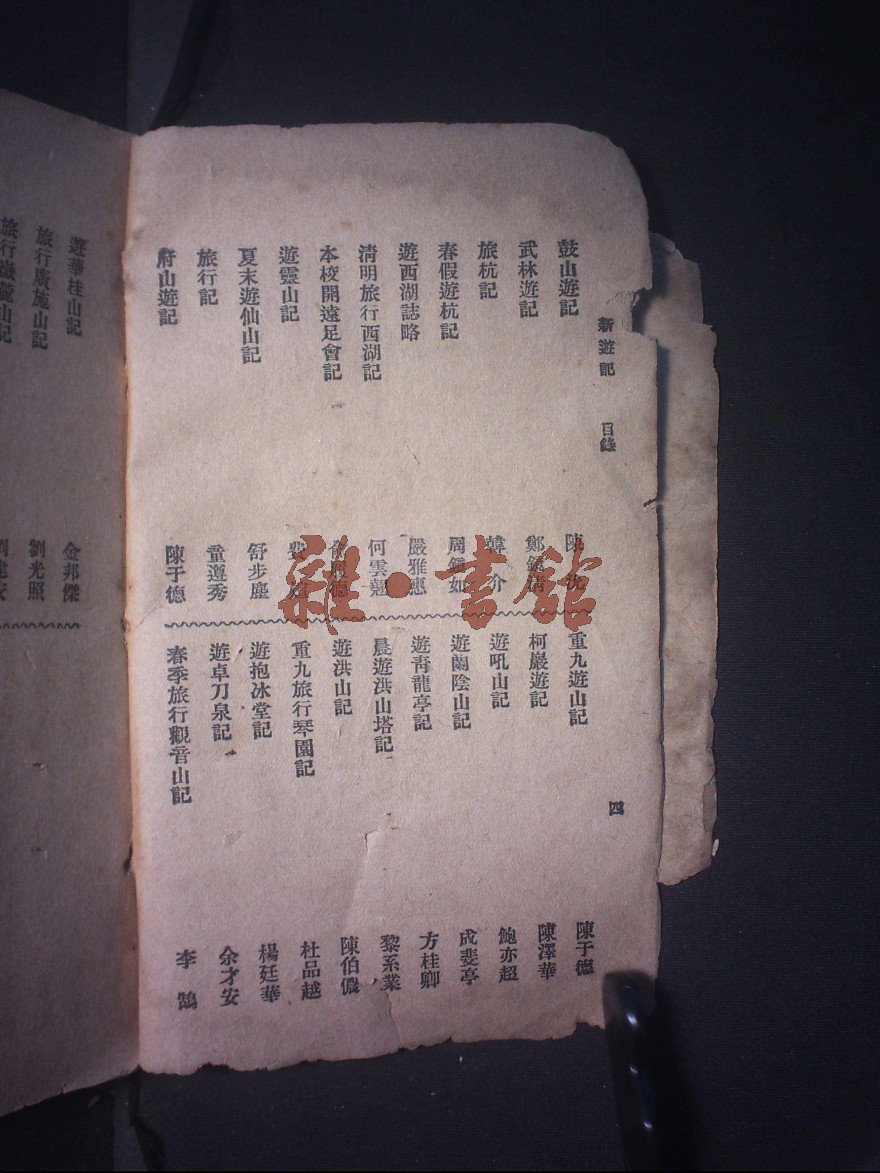 新遊記 目錄 四
鼓山遊記 陳
武林遊記 鄭
旅杭記 韓 介
春假遊杭記 周 如
遊西湖誌略 嚴雅惠
清明旅行西湖記 何雲
本校開遠足會記 德
遊靈山記 費
夏末遊仙山記 舒步塵
旅行記 童遵秀
府山遊記 陳于德
重九遊山記 陳于德
柯巖遊記 陳澤華
遊吼山記 鮑亦超
遊蘭陰山記 成斐亭
遊青龍亭記 方桂卿
晨遊洪山塔記 黎系業
遊洪山記 陳伯儂
重九旅行琴園記 杜品越
遊抱冰堂記 楊廷華
遊卓刀泉記 余才安
春季旅行觀音山記 李鵠
遊華桂山記 金邦傑
旅行廣施山記 劉光照
旅行 山記 劉 安
雜·書館